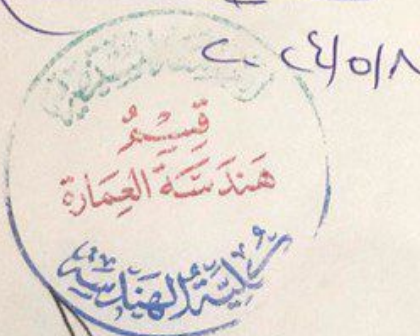 ٢٠٢٤/٥/٨
قِسْمُ
هَندَسَةَ العِمَارَة
كليَّة الهَندَسَة